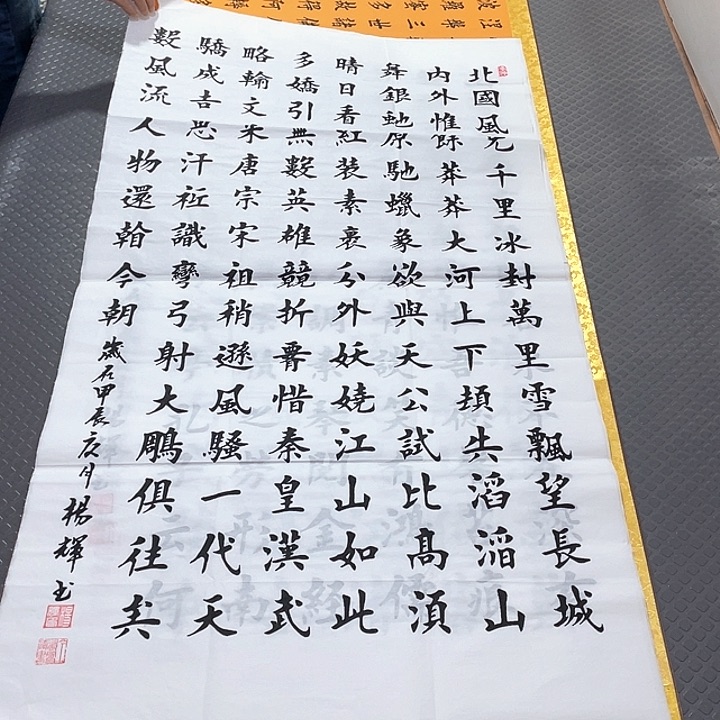 北國風光千里冰封萬里雪飄望長城
內外惟餘莽莽大河上下頓失滔滔山
舞銀蛇原馳蠟象欲與天公試比高須
晴日看紅裝素裹分外妖嬈江山如此
多嬌引無數英雄競折腰惜秦皇漢武
略輸文采唐宗宋祖稍遜風騷一代天
驕成吉思汗祗識彎弓射大鵰俱往矣
數風流人物還看今朝
歲在甲辰月楊輝書